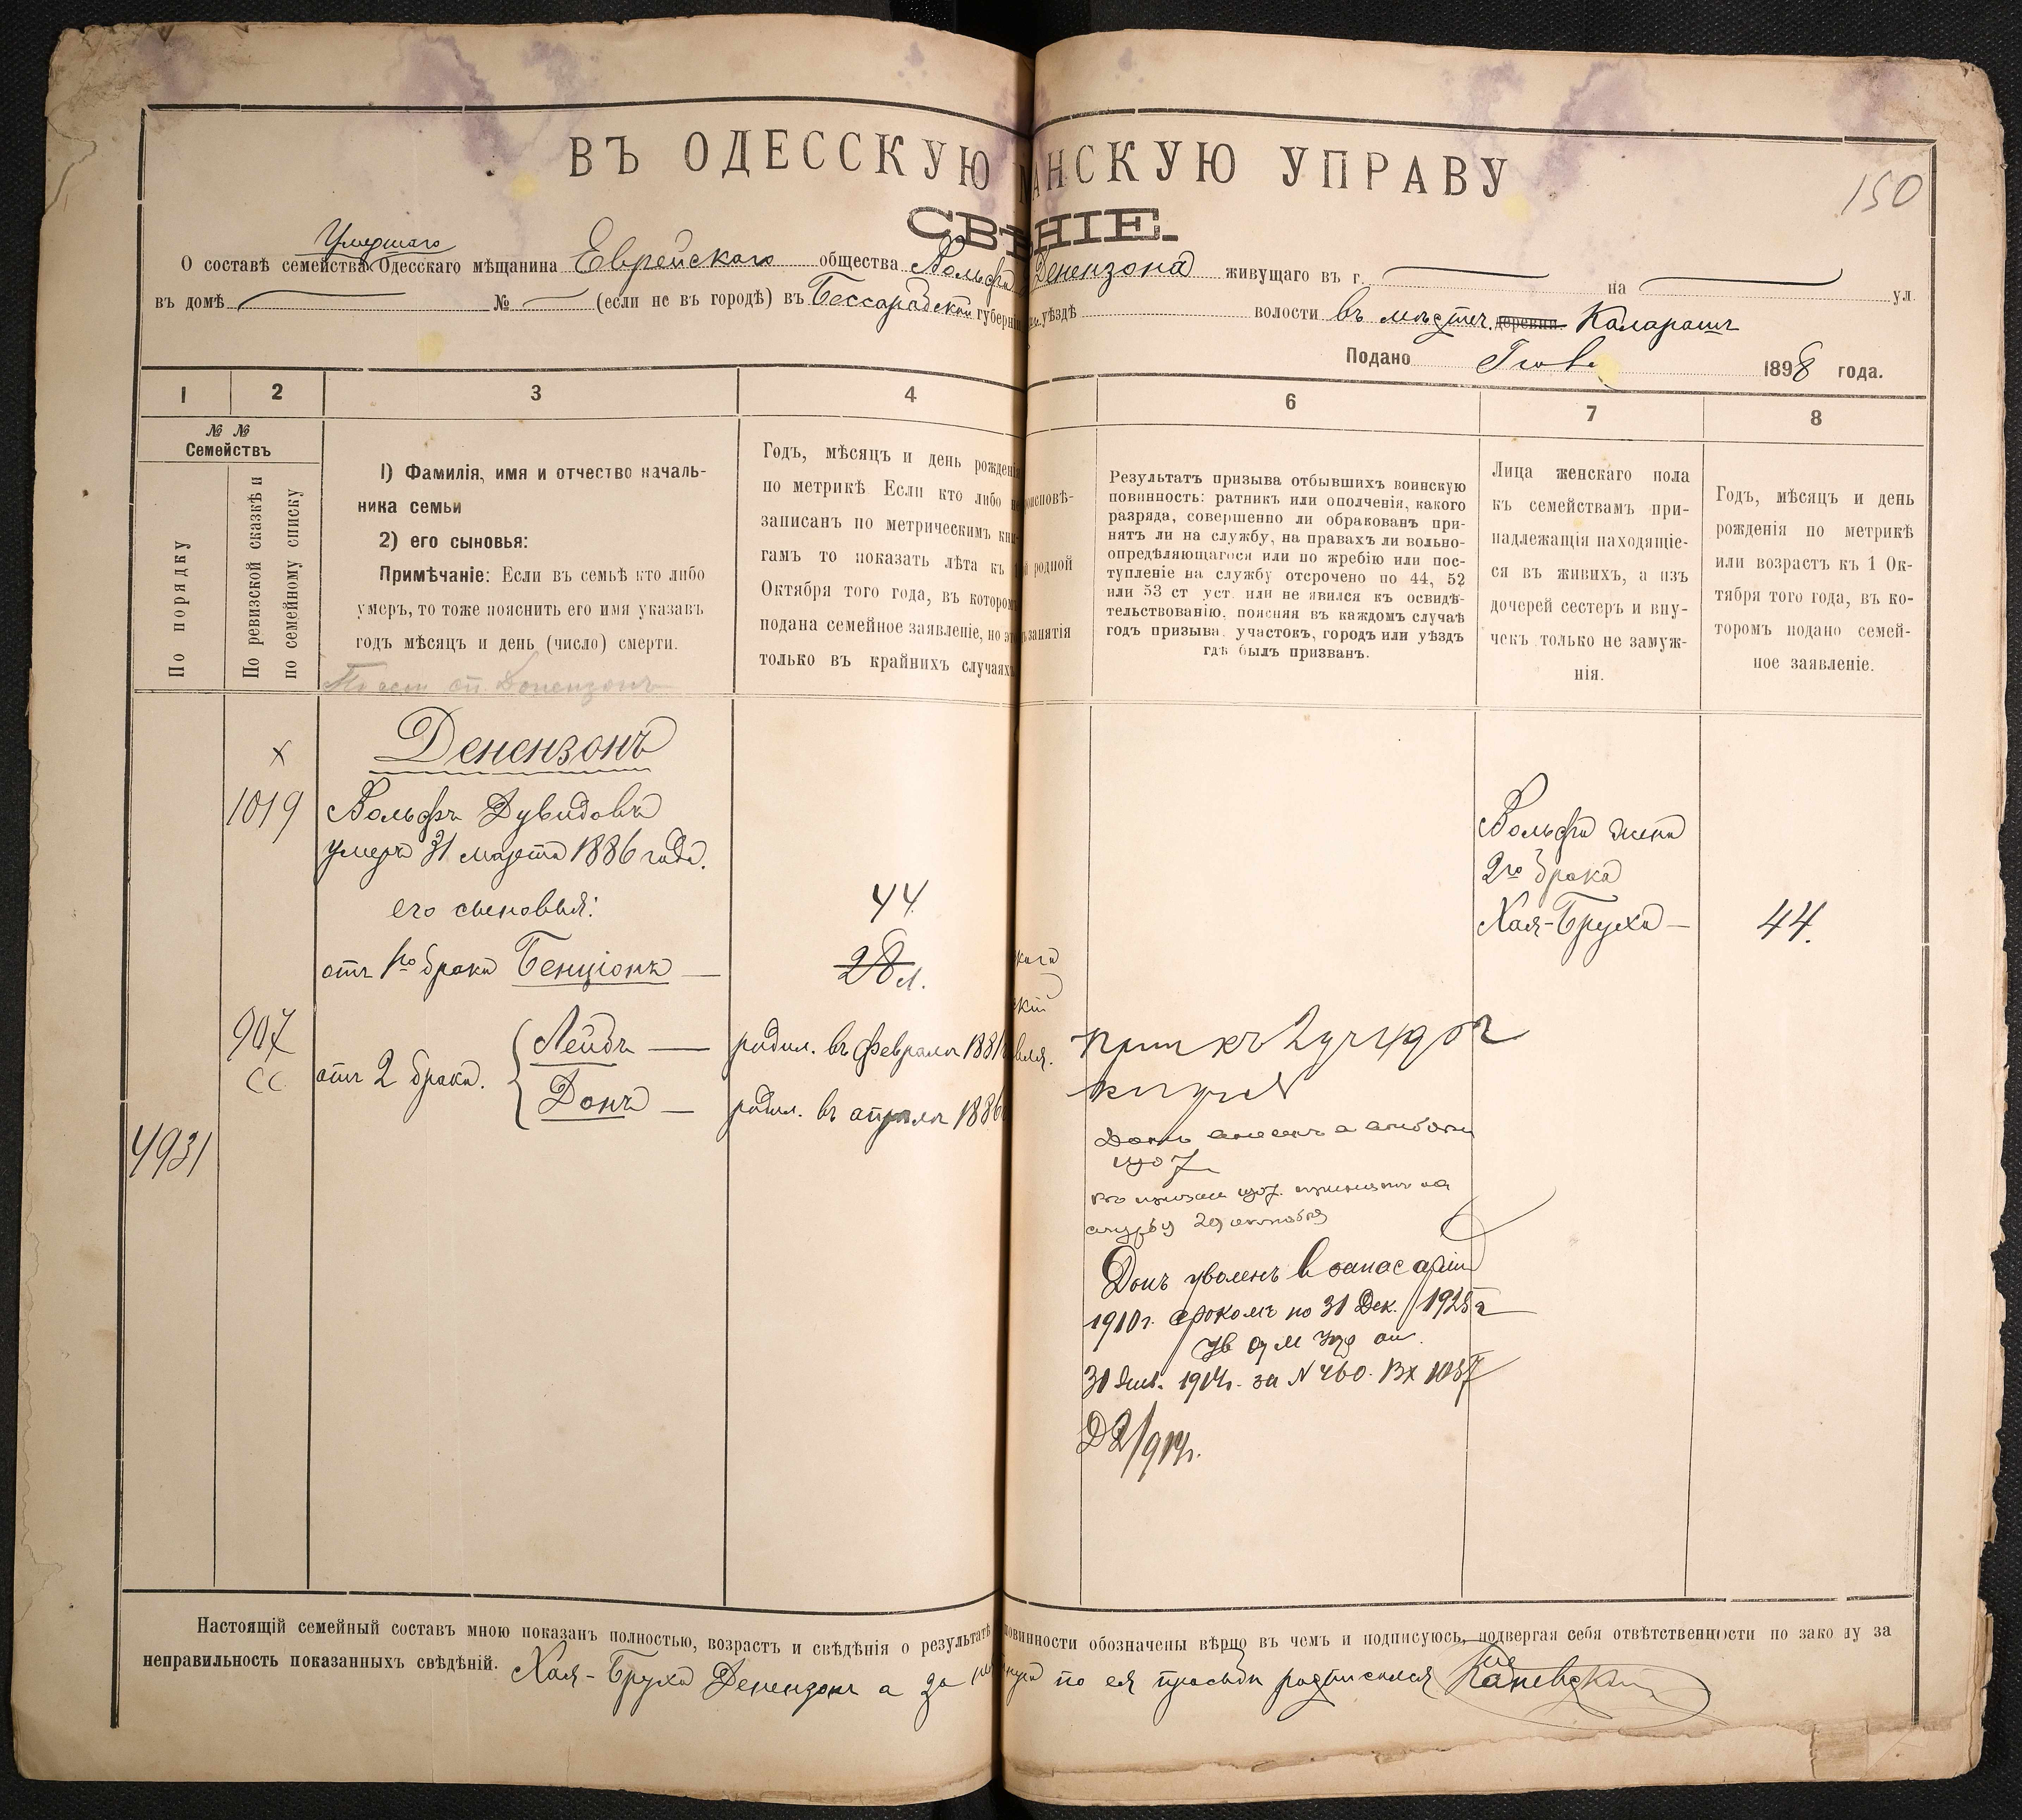 ВЪ ОДЕССКУЮ АНСКУЮ УПРАВУ
150
СВѢНІЕ.
Умершаго
О составѣ семейства Одесскаго мѣщанина Еврейскаго общества Вольфа Денензона живущаго въ г. на ул.
въ домѣ № (если не въ городѣ) въ Бессарабской губерніи уѣздѣ волости въ мѣстеч. деревни Каларашъ
Подано 1898 года.
1 2 3 4 6 7 8
№ №
Семействъ
По порядку
По ревизской сказкѣ и
по семейному списку
1) Фамилія, имя и отчество началь-
ника семьи
2) его сыновья:
Примѣчаніе: Если въ семьѣ кто либо
умеръ, то тоже пояснить его имя указавъ
годъ мѣсяцъ и день (число) смерти.
Денензонъ
Годъ, мѣсяцъ и день рожденія
по метрикѣ. Если кто либо не
записанъ по метрическимъ кни-
гамъ то показать лѣта къ 1
Октября того года, въ которомъ
подана семейное заявленіе, но это
только въ крайнихъ случаяхъ
оисповѣ-
родной
занятія
Результатъ призыва отбывшихъ воинскую
повинность: ратникъ или ополченія, какого
разряда, совершенно ли обракованъ при-
нятъ ли на службу, на правахъ ли вольно-
опредѣляющагося или по жребію или пос-
тупленіе на службу отсрочено по 44, 52
или 53 ст уст. или не явился къ освидѣ-
тельствованію, поясняя въ каждомъ случаѣ
годъ призыва, участокъ, городъ или уѣздъ
гдѣ былъ призванъ.
Лица женскаго пола
къ семействамъ при-
надлежащія находящіе-
ся въ живихъ, а изъ
дочерей сестеръ и вну-
чекъ только не замуж-
нія.
Годъ, мѣсяцъ и день
рожденія по метрикѣ
или возрастъ къ 1 Ок-
тября того года, въ ко-
торомъ подано семей-
ное заявленіе.
х
Денензонъ
1019 Вольфъ Дувидовъ
умеръ 31 марта 1886 года.
его сыновья:
отъ 1го брака Бенціонъ —
44
28 л.
907
СС
отъ 2 брака.
Лейбъ — родил. въ февралѣ 1881
Донъ — родил. въ апрѣлѣ 1886
4931
каго
кій
Вольфа жена
2го брака
Хая-Бруха —
44.
1907
въ призыв 1907. принятъ на
службу 29 октября
Донъ уволенъ в запас арміи
1910г. срокомъ по 31 Дек. 1925 г
30 Янв. 1914г. за N 460. Вх 1057
Д 2/914г.
Настоящій семейный составъ мною показанъ полностью, возрастъ и свѣдѣнія о результатѣ повинности обозначены вѣрно въ чемъ и подписуюсь, подвергая себя отвѣтственности по закону за
неправильность показанныхъ свѣдѣній. Хая-Бруха Денензонъ а за не по ея просьбѣ росписался Каневскій